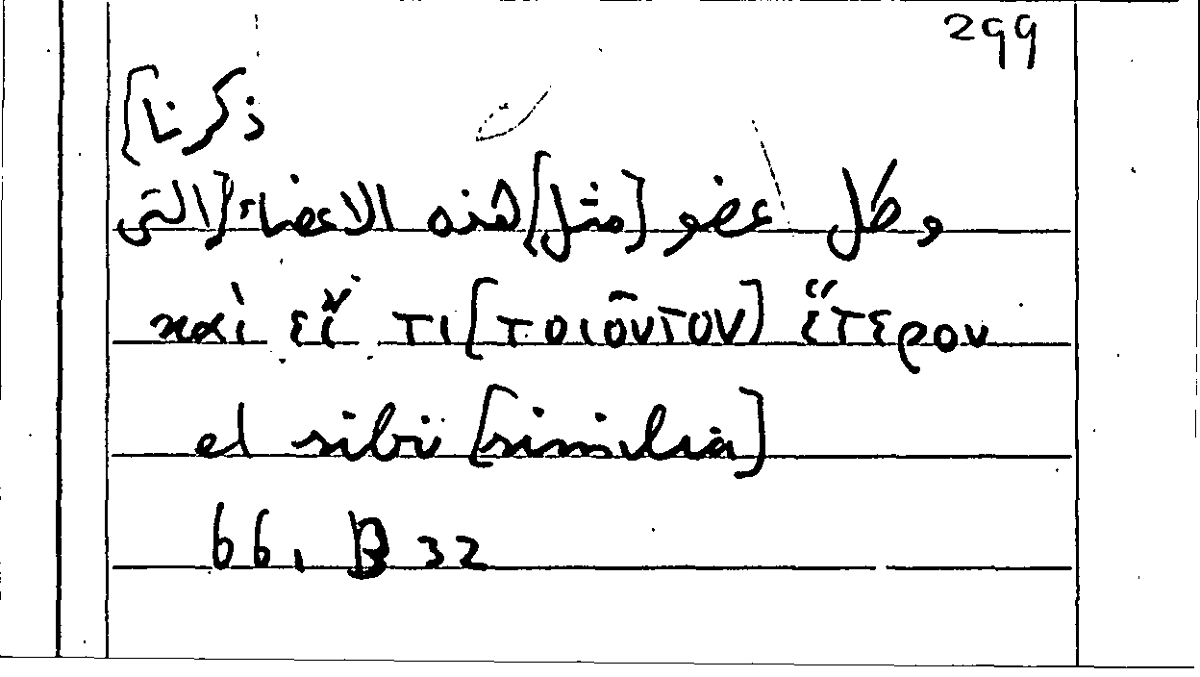 299
ذكرنا]
وكل عضو [مثل] هذه الاعضاء [التى
καὶ εἴ τι [τοιοῦτον] ἕτερον
et sibi [similia]
66, B 32